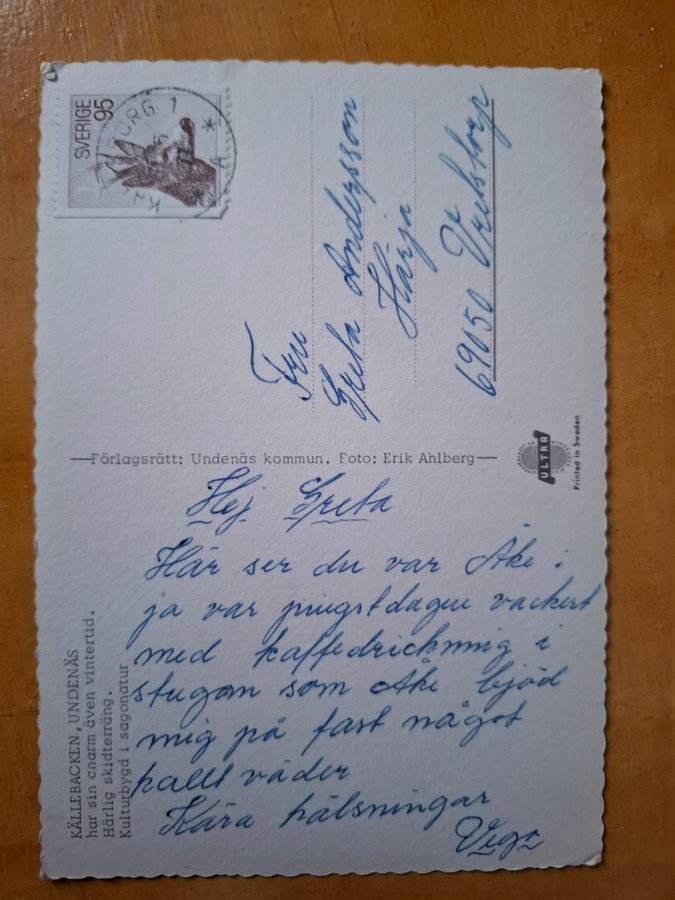 SVERIGE 95
Fru
Greta Andersson
Härja
69050 Vretstorp
Förlagsrätt: Undenäs kommun. Foto: Erik Ahlberg
ULTRA
Printed in Sweden
Hej Greta
Här ser du var Åke i
ja var pingstdagen vackert
med kaffedrickning i
stugan som Åke bjöd
mig på fast något
kallt väder
Kära hälsningar
Vega
KÄLLEBACKEN, UNDENÄS
har sin charm även vintertid.
Härlig skidterräng.
Kulturbygd i sagonatur